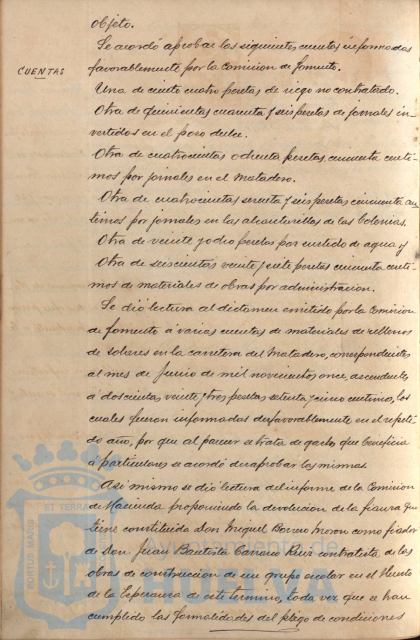 objeto.
Se acordó aprobar las siguientes cuentas informadas
CUENTAS
favorablemente por la Comision de fomento.
Una de ciento cuatro pesetas de riego no contratado.
Otra de quinientas cuarenta y seis pesetas de jornales in-
vertidos en el pozo dulce.
Otra de cuatrocientas ochenta pesetas, cincuenta centi-
mos por jornales en el Matadero.
Otra de cuatrocientas setenta y seis pesetas cincuenta cen-
timos por jornales en las alcantarillas de las Colonias.
Otra de veinte y ocho pesetas por surtido de agua y
Otra de seiscientas veinte y siete pesetas cincuenta centi-
mos de materiales de obras por administracion.
Se dio lectura al dictamen emitido por la Comision
de fomento á varias cuentas de materiales de rellenos
de solares en la carretera del Matadero, correspondientes
al mes de Junio de mil novecientos once, ascendentes
á doscientas veinte y tres pesetas setenta y cinco centimos, las
cuales fueron informadas desfavorablemente en el repeti-
do año, por que al parecer se trata de gastos que beneficia
á particulares se acordó desaprobar las mismas.
Asi mismo se dio lectura del informe de la Comision
de Hacienda proponiendo la devolucion de la fianza que
tiene constituida Don Miguel Moron como fiador
de Don Juan Bautista Ruiz contratista de las
obras de construccion de un grupo escolar en el Huerto
de la Esperanza de este termino, toda vez que se han
cumplido las formalidades del pliego de condiciones
PORTUS MARIS
ET TERRAE
Ayuntamiento de